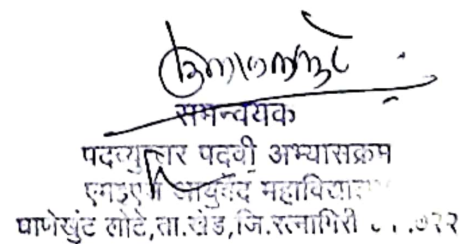 समन्वयक
पदव्युत्तर पदवी अभ्यासक्रम
एमइएस आयुर्वेद महाविद्यालय
घाणेखुंट लोटे,ता.खेड,जि.रत्नागिरी